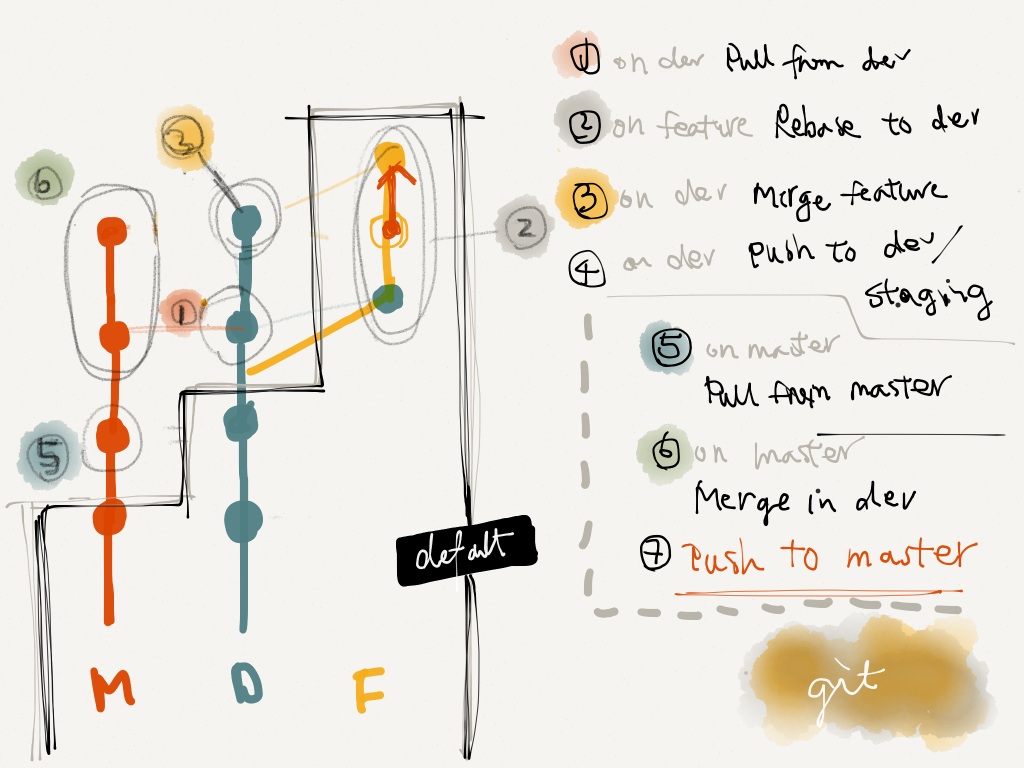 6
3
2
1
5
default
M D F
1 on dev Pull from dev
2 on feature Rebase to dev
3 on dev Merge feature
4 on dev Push to dev/
staging
5 on master
Pull from master
6 on master
Merge in dev
7 Push to master
git